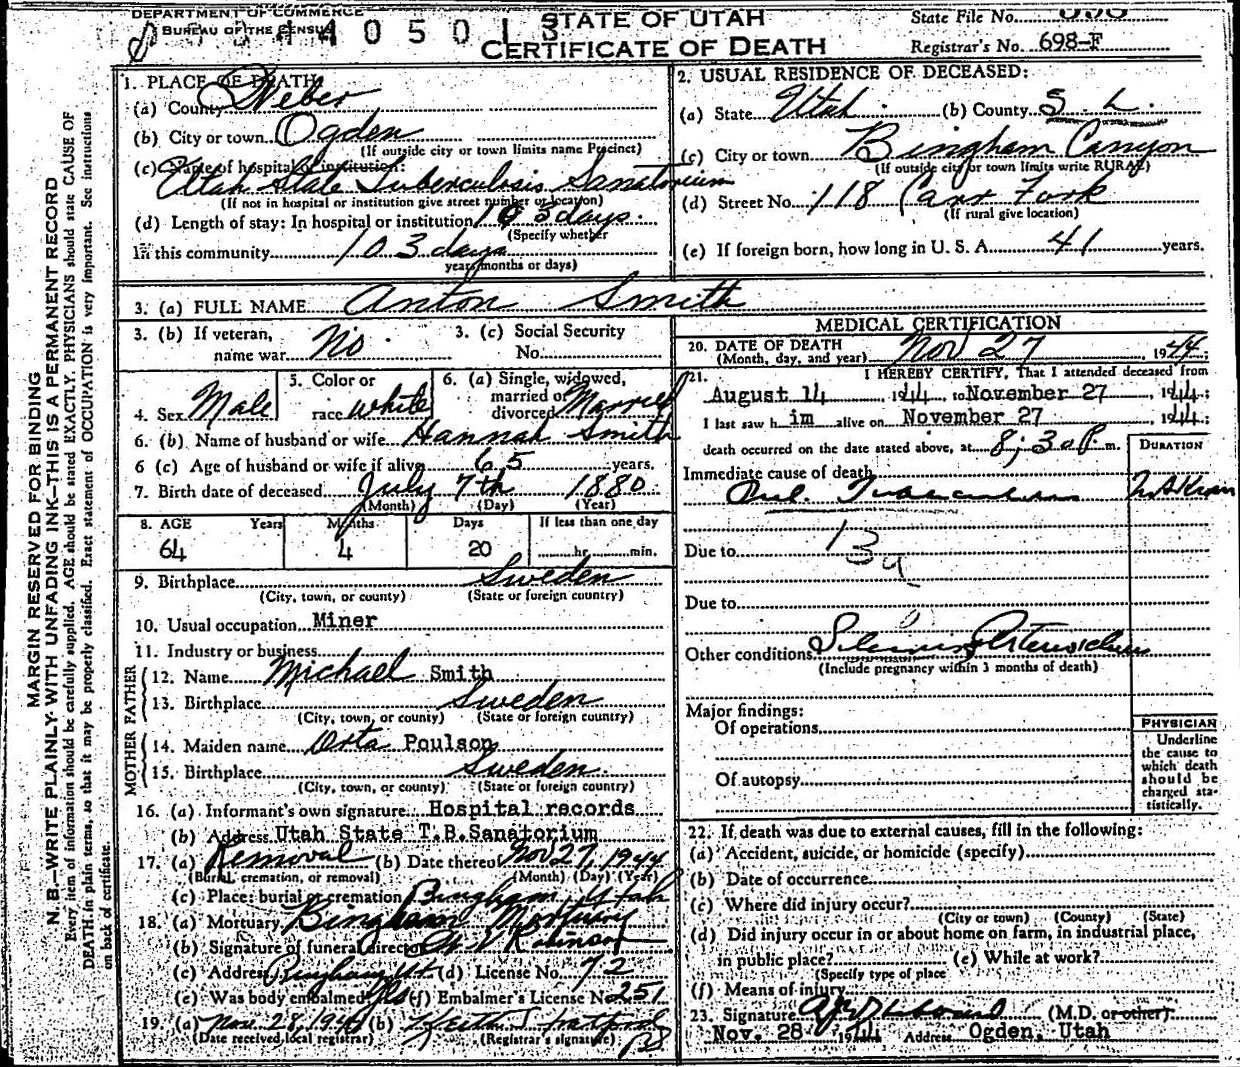 DEPARTMENT OF COMMERCE
BUREAU OF THE CENSUS
STATE OF UTAH
CERTIFICATE OF DEATH
State File No.
Registrar's No. 698-F
MARGIN RESERVED FOR BINDING
N. B.—WRITE PLAINLY WITH UNFADING INK—THIS IS A PERMANENT RECORD
Every item of information should be carefully supplied. AGE should be stated EXACTLY. PHYSICIANS should state CAUSE OF
DEATH in plain terms, so that it may be properly classified. Exact statement of OCCUPATION is very important. See instructions
on back of certificate.
1. PLACE OF DEATH
(a) County Weber
(b) City or town Ogden
(If outside city or town limits name Precinct)
(c) Name of hospital or institution:
Utah State Tuberculosis Sanatorium
(If not in hospital or institution give street number or location)
(d) Length of stay: In hospital or institution 105 days.
(Specify whether
In this community 103 days
years, months or days)
2. USUAL RESIDENCE OF DECEASED:
(a) State Utah (b) County S. L.
(c) City or town Bingham Canyon
(If outside city or town limits write RURAL)
(d) Street No. 118 Carr Fork
(If rural give location)
(e) If foreign born, how long in U. S. A. 41 years.
3. (a) FULL NAME Anton Smith
3. (b) If veteran, name war No.
3. (c) Social Security No.
4. Sex Male
5. Color or race white
6. (a) Single, widowed, married or divorced Married
6. (b) Name of husband or wife Hannah Smith
6 (c) Age of husband or wife if alive 65 years.
7. Birth date of deceased July 7th 1880
(Month) (Day) (Year)
8. AGE Years Months Days If less than one day
64 4 20 hr. min.
9. Birthplace Sweden
(City, town, or county) (State or foreign country)
10. Usual occupation Miner
11. Industry or business
FATHER
12. Name Michael Smith
13. Birthplace Sweden
(City, town, or county) (State or foreign country)
MOTHER
14. Maiden name Orta Poulson
15. Birthplace Sweden
(City, town, or county) (State or foreign country)
16. (a) Informant's own signature Hospital records
(b) Address Utah State T.B. Sanatorium
17. (a) Removal (b) Date thereof Nov 27, 1944
(Burial, cremation, or removal) (Month) (Day) (Year)
(c) Place: burial or cremation Bingham, Utah
18. (a) Mortuary Bingham Mortuary
(b) Signature of funeral director Robinson
(c) Address Bingham Ut (d) License No. 72
(e) Was body embalmed Yes (f) Embalmer's License No. 251
19. (a) Nov. 28, 1944 (b) Keith
(Date received local registrar) (Registrar's signature)
MEDICAL CERTIFICATION
20. DATE OF DEATH
(Month, day, and year) Nov 27, 1944;
21. I HEREBY CERTIFY, That I attended deceased from
August 14 1944 to November 27 1944;
I last saw h im alive on November 27 1944;
death occurred on the date stated above, at 8:30 P. m.
DURATION
Immediate cause of death
Pul. Tuberculosis
Due to 13a
Due to
Other conditions
(Include pregnancy within 3 months of death)
Major findings:
Of operations
Of autopsy
PHYSICIAN
Underline
the cause to
which death
should be
charged sta-
tistically.
22. If death was due to external causes, fill in the following:
(a) Accident, suicide, or homicide (specify)
(b) Date of occurrence
(c) Where did injury occur?
(City or town) (County) (State)
(d) Did injury occur in or about home on farm, in industrial place,
in public place? (e) While at work?
(Specify type of place
(f) Means of injury
23. Signature (M.D. or other).
Nov. 28 1944 Address Ogden, Utah